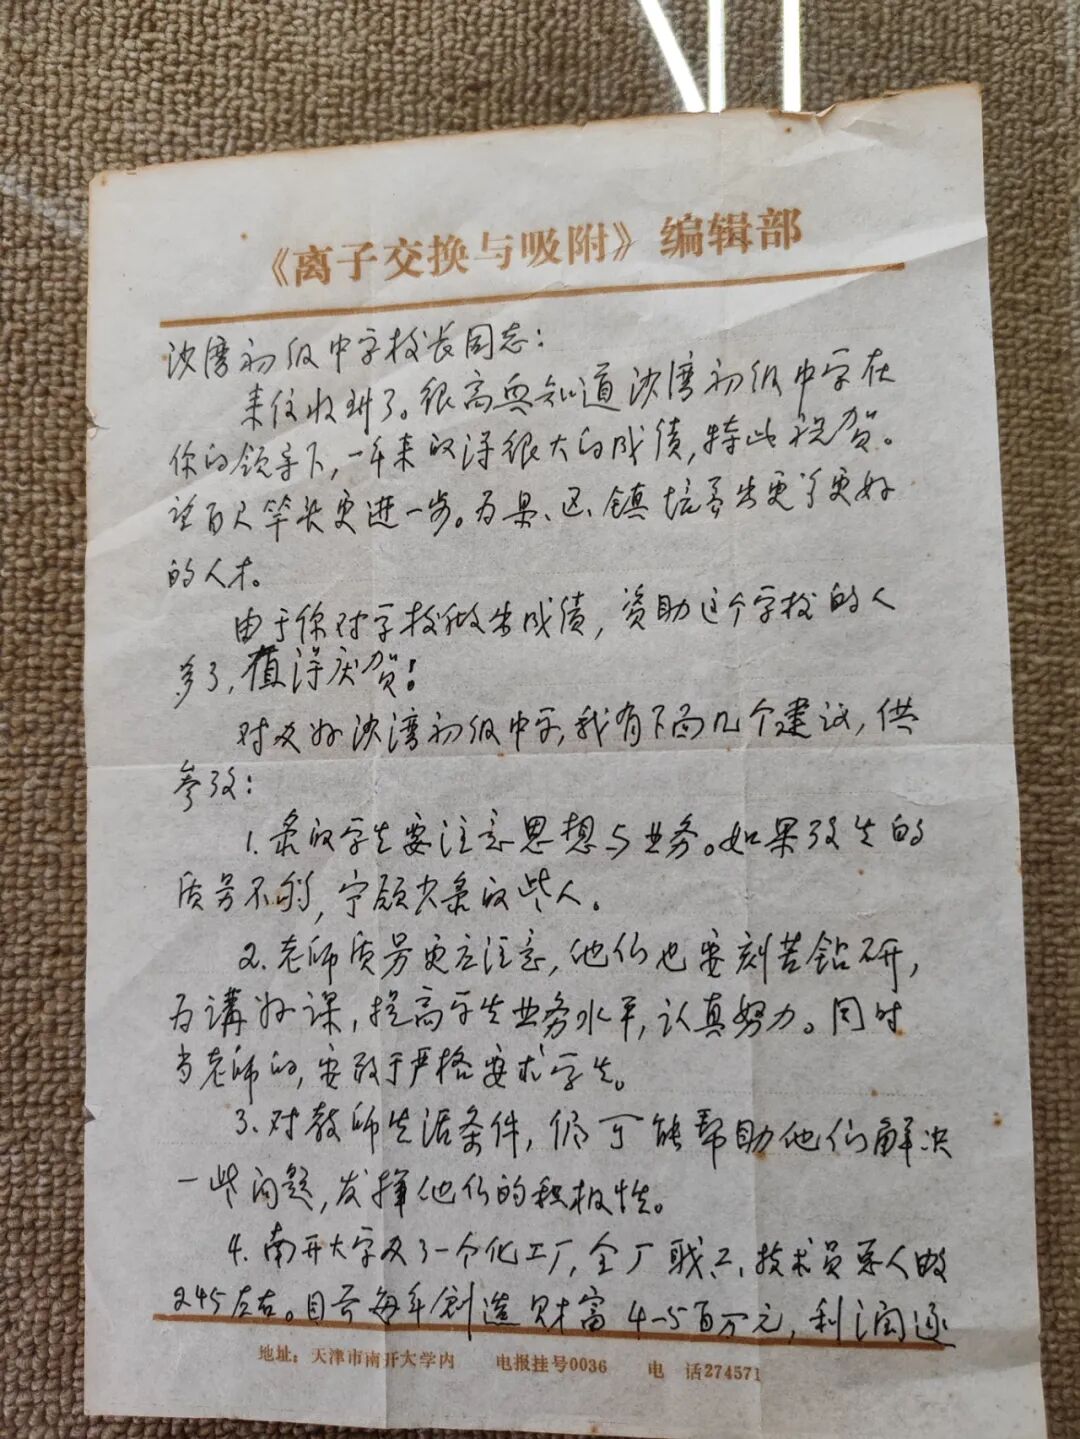 《离子交换与吸附》编辑部
沈湾初级中学校长同志：
来信收到了。很高兴知道沈湾初级中学在
你的领导下，一年来取得很大的成绩，特此祝贺。
望百尺竿头更进一步。为县、区、镇培养出更多更好
的人才。
由于你对学校做出成绩，资助这个学校的人
多了，值得庆贺！
对办好沈湾初级中学，我有下面几个建议，供
参考：
1. 录取学生要注意思想与业务。如果考生的
质量不够，宁愿少录取些人。
2. 老师质量更应注意，他们也要刻苦钻研，
为講好课，提高学生业务水平，认真努力。同时
当老师的，要敢于严格要求学生。
3. 对教师生活条件，尽可能帮助他们解决
一些问题，发挥他们的积极性。
4. 南开大学办了一个化工厂，全厂职工、技术员
245左右。目前每年创造财富4-5百万元，利润逐
地址：天津市南开大学内 电报挂号0036 电 话274571